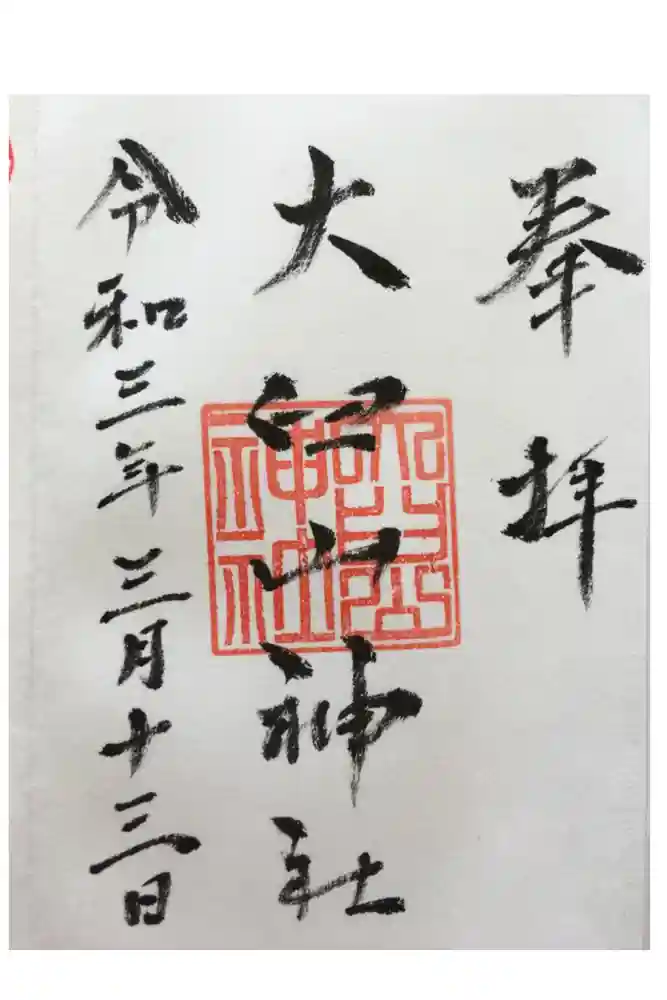 奉拝
大山神社
令和三年三月十三日